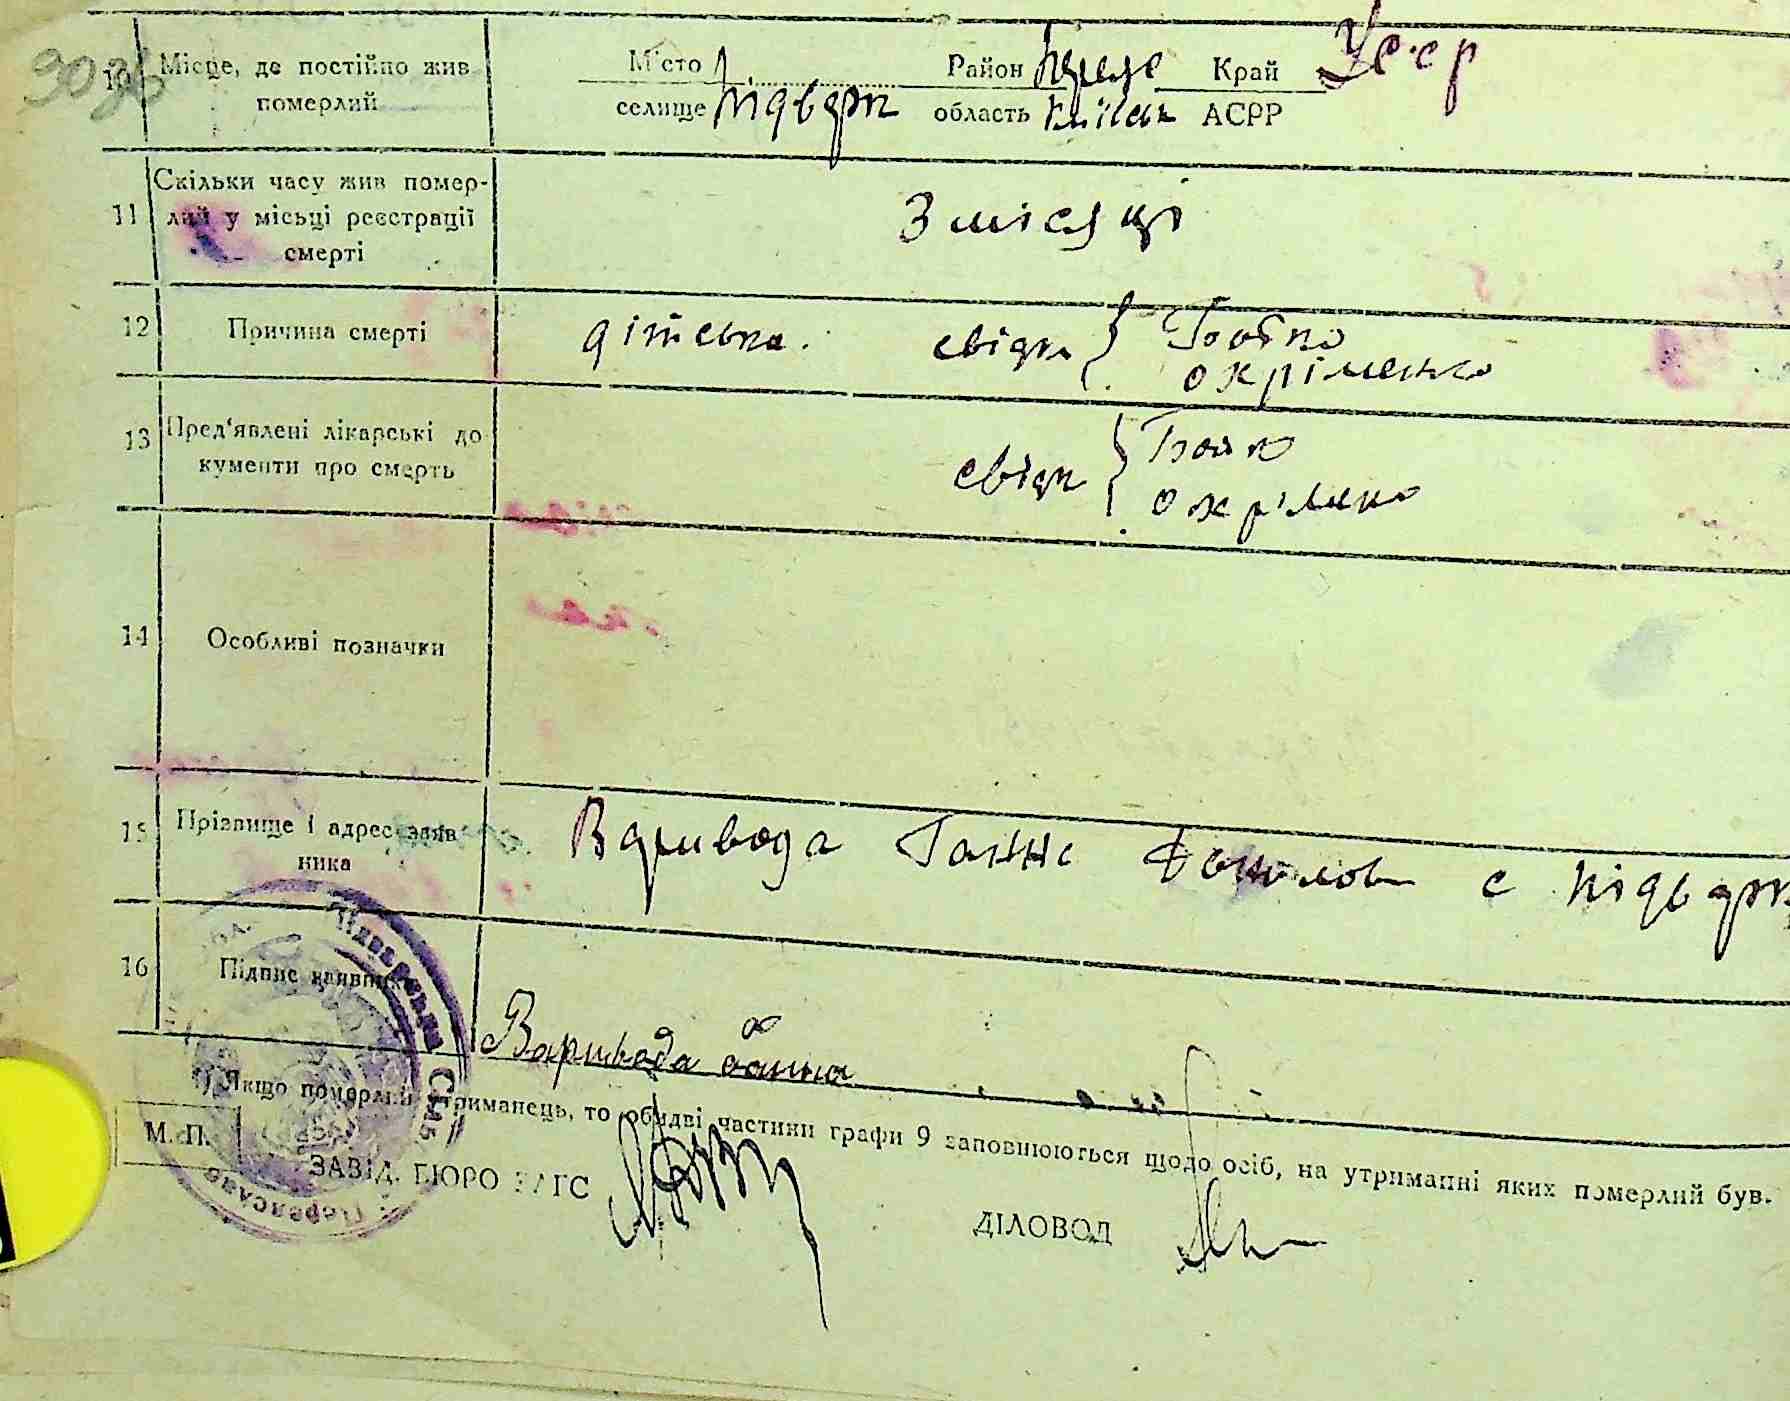 10 Місце, де постійно жив померлий
Місто
Район Край Усср
селище Підварк область Київськ АСРР
11 Скільки часу жив помер-
лий у місьці реєстрації
смерті
3 місяці
12 Причина смерті
дітська. свідки
Бойко
Охріменко
13 Пред'явлені лікарські до
кументи про смерть
свідки
Бойко
Охріменко
14 Особливі позначки
15 Прізвище і адрес заяв
ника
Варивода Ганна с Підварк
16 Підпис заявника
Варивода Ганна
1) Якщо померлий утриманець, то обидві частини графи 9 заповнюються щодо осіб, на утриманні яких померлий був.
М. П.
ЗАВІД. БЮРО ЗАГС
ДІЛОВОД